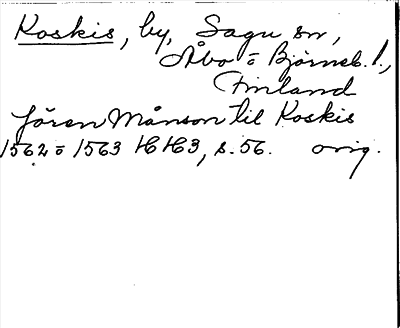 Koskis, by, Sagu sn,
Åbo = Björneb. l.,
Finland
Jören Månson til Koskis
1562 = 1563 HH3, s. 56. orig.